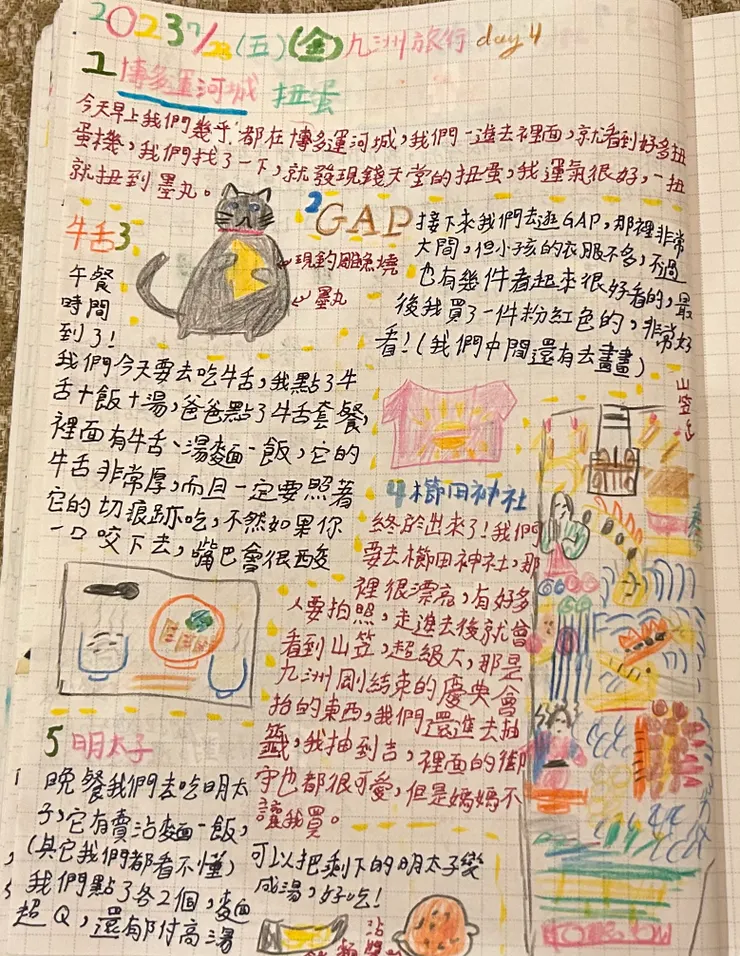 2023 7/28 (五)(金)九洲旅行 day4
1 博多運河城 扭蛋
今天早上我們幾乎都在博多運河城,我們一進去裡面,就看到好多扭
蛋機,我們找了一下,就發現錢天堂的扭蛋,我運氣很好,一扭
就扭到墨丸。
2 GAP
接下來我們去逛GAP,那裡非常
大間,但小孩的衣服不多,不過
也有幾件看起來很好看的,最
後我買了一件粉紅色的,非常好
看!(我們中間還有去畫畫)
現釣鯛魚燒
墨丸
牛舌3
午餐
時間
到了!
我們今天要去吃牛舌,我點了牛
舌+飯+湯,爸爸點了牛舌套餐,
裡面有牛舌、湯麵、飯,它的
牛舌非常厚,而且一定要照著
它的切痕跡吃,不然如果你
一口咬下去,嘴巴會很酸
山笠
4櫛田神社
終於出來了!我們
要去櫛田神社,那
裡很漂亮,有好多
人要拍照,走進去後就會
看到山笠,超級大,那是
九洲剛結束的慶典會
抬的東西,我們還進去抽
籤,我抽到吉,裡面的御
守也都很可愛,但是媽媽不
讓我買。
5 明太子
晚餐我們去吃明太
子,它有賣沾麵、飯,
(其它我們都看不懂)
我們點了各2個,麵
超Q,還有附高湯
可以把剩下的明太子變
成湯,好吃!
沾